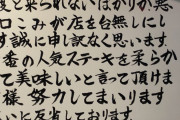 度と来られないばかりか悪
口こみが店を台無しにし
す誠に申し訳なく思います。
番の人気ステーキを柔らか
て美味しいと言って頂けま
様努力してまいります
いに反省しております